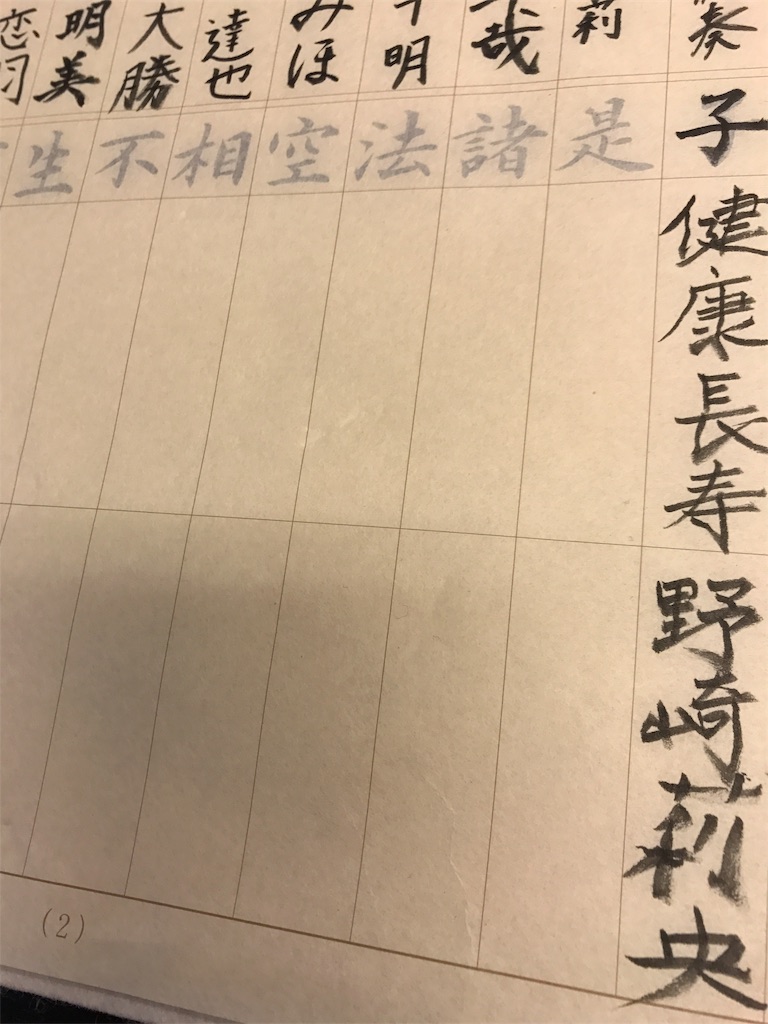 奏子健康長寿 野崎莉央
莉是
哉諸
明法
みほ空
達也相
大勝不
明美生
(2)